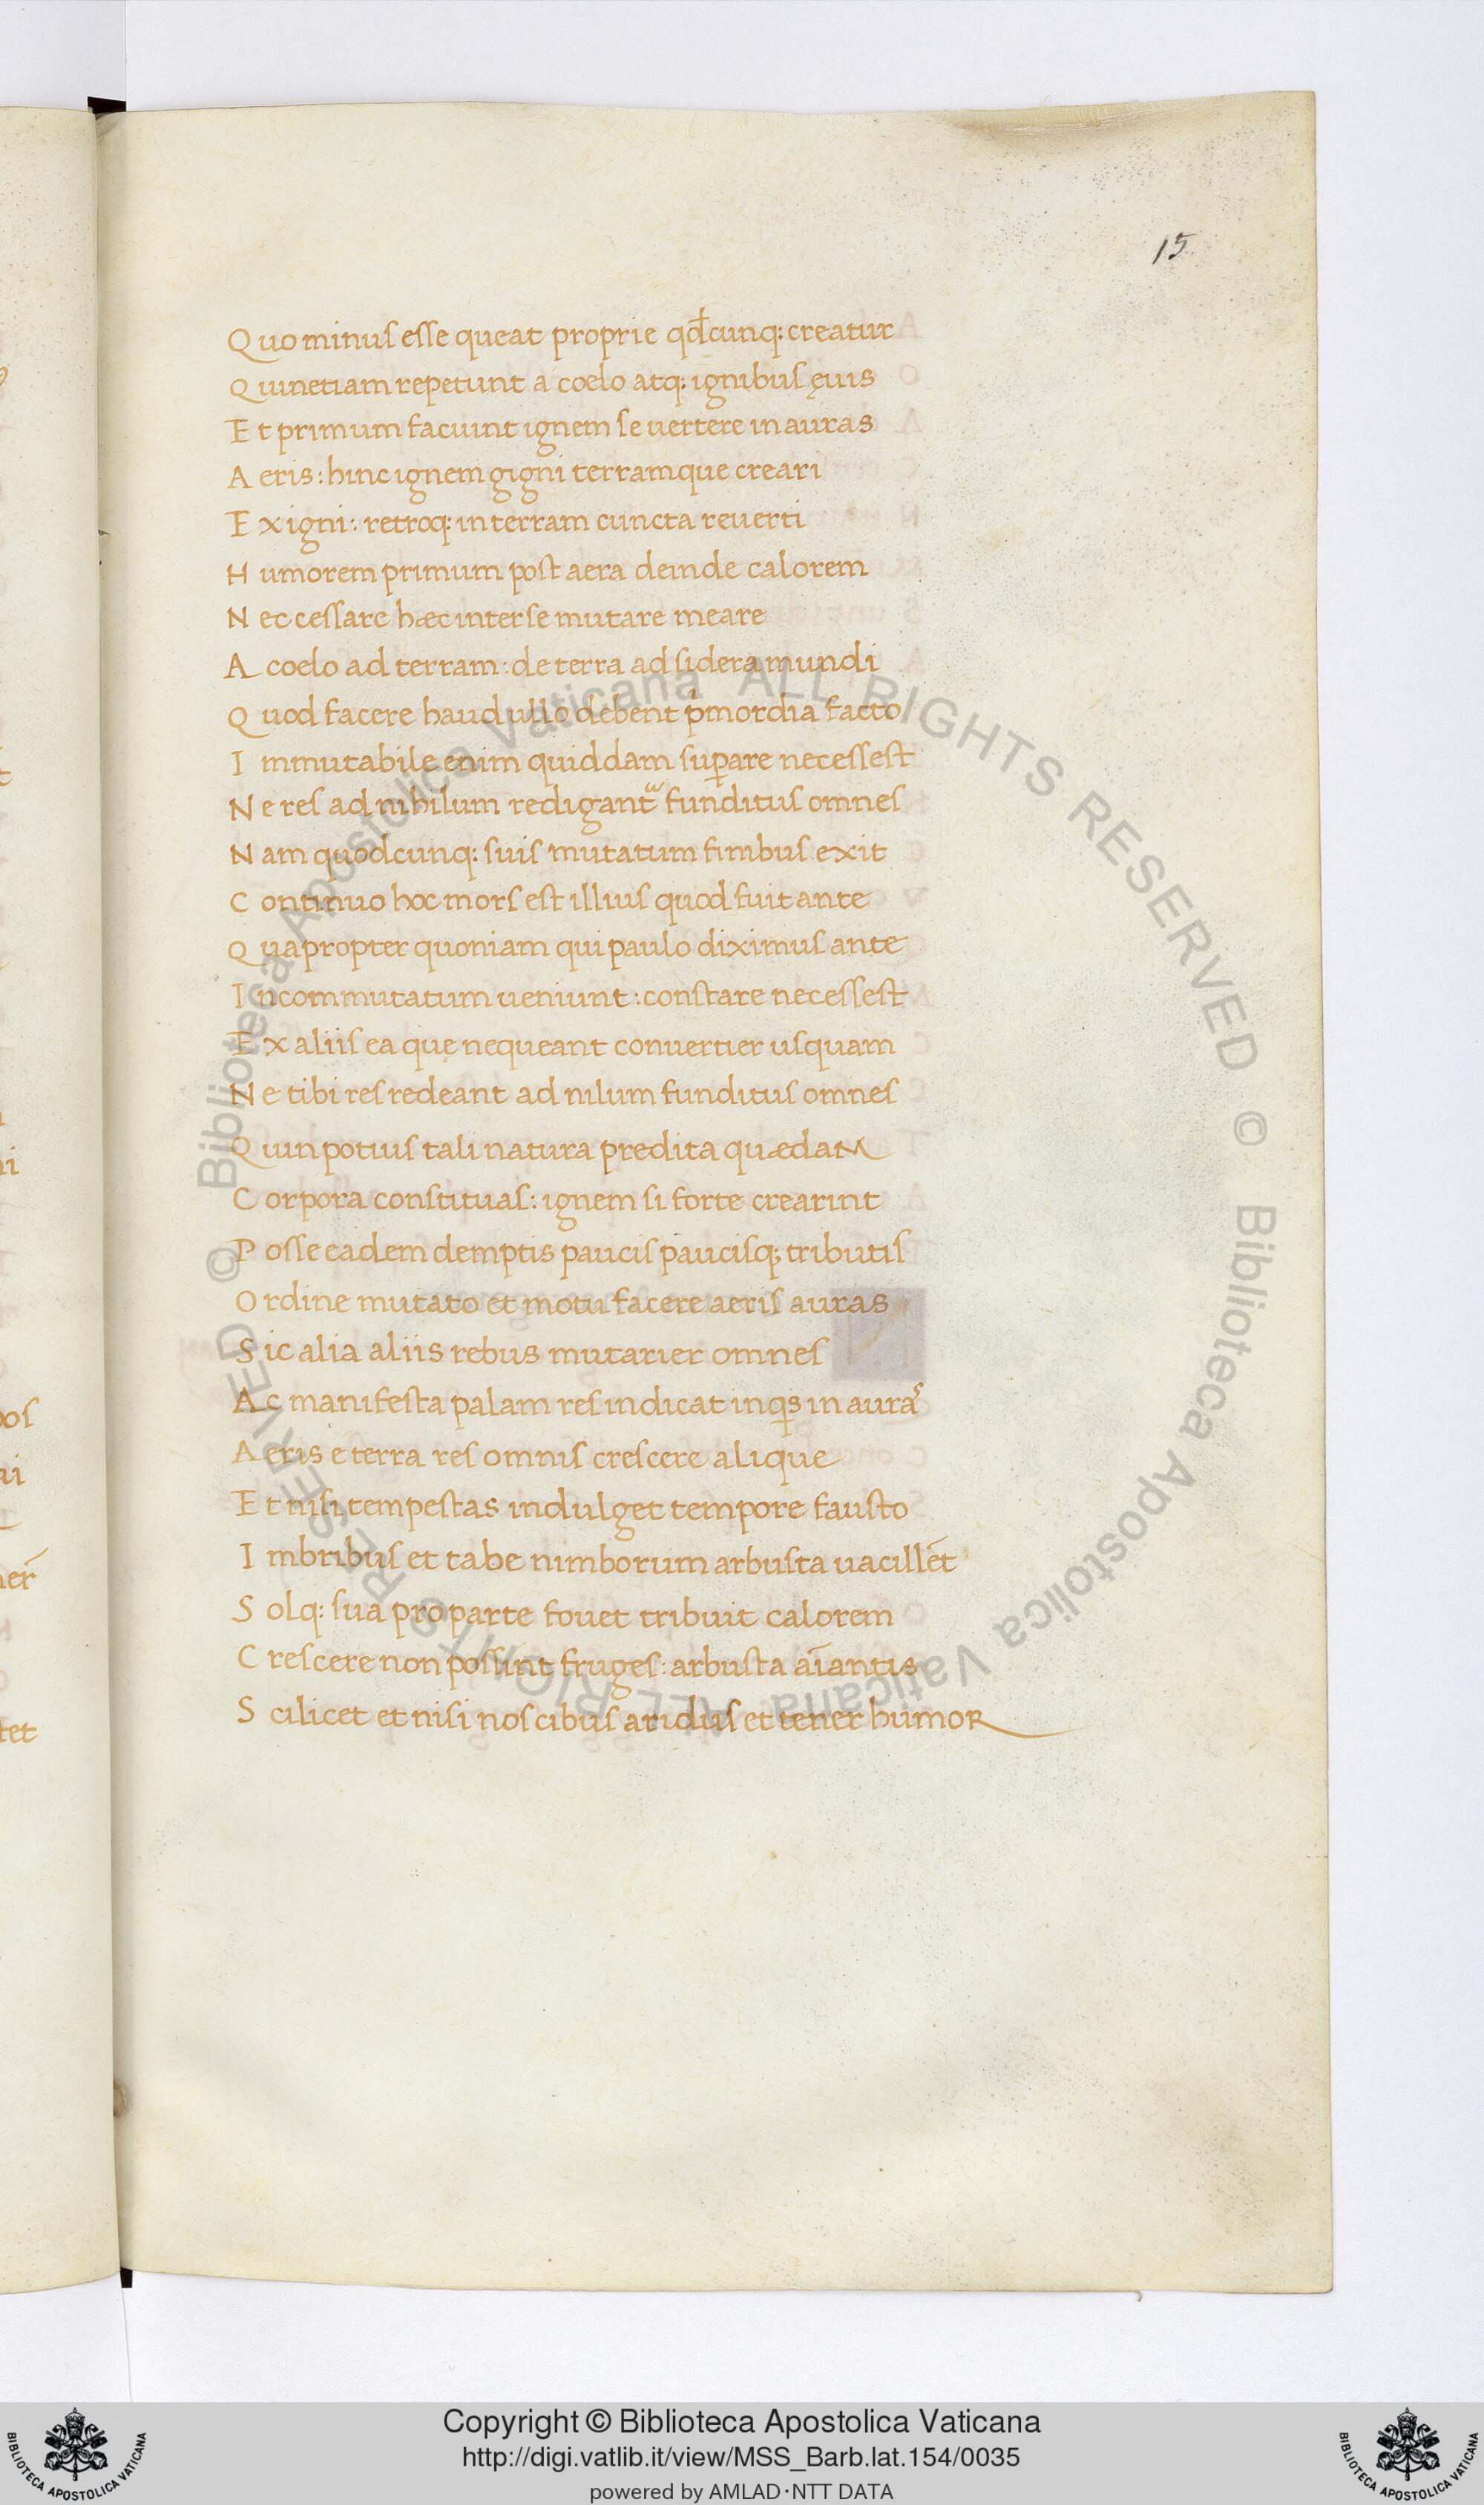 15
Quo minus esse queat proprie qđcunq: creatur
Quinetiam repetunt a coelo atq: ignibus ęuis
Et primum faciunt ignem se uertere in auras
Aeris: hinc ignem gigni terramque creari
Ex igni: retroq: in terram cuncta reuerti
Humorem primum post aera deinde calorem
Nec cessare hæc inter se mutare meare
A coelo ad terram: de terra ad sidera mundi
Quod facere haud ullo debent pͥmordia facto
Immutabile enim quiddam suꝑare necessest
Ne res ad nihilum redigant᷑ funditus omnes
Nam quodcunq: suis mutatum finibus exit
Continuo hoc mors est illius quod fuit ante
Quapropter quoniam qui paulo diximus ante
Incommutatum ueniunt: constare necessest
Ex aliis ea quę nequeant conuertier usquam
Ne tibi res redeant ad nilum funditus omnes
Quin potius tali natura predita quædam
Corpora constituas: ignem si forte crearint
Posse eadem demptis paucis paucisq; tributis
Ordine mutato et motu facere aeris auras
Sic alia aliis rebus mutarier omnes
Ac manifesta palam res indicat inqͥs in auras
Aeris e terra res omnis crescere alique
Et nisi tempestas indulget tempore fausto
Imbribus et tabe nimborum arbusta uacillēt
Solq: sua pro parte fouet tribuit calorem
Crescere non possint fruges: arbusta aīantis
Scilicet et nisi nos cibus aridus et tener humor
© Biblioteca Apostolica Vaticana ALL RIGHTS RESERVED
© Biblioteca Apostolica Vaticana ALL RIGHTS RESERVED
Copyright © Biblioteca Apostolica Vaticana
http://digi.vatlib.it/view/MSS_Barb.lat.154/0035
powered by AMLAD·NTT DATA
BIBLIOTECA APOSTOLICA VATICANA
BIBLIOTECA APOSTOLICA VATICANA